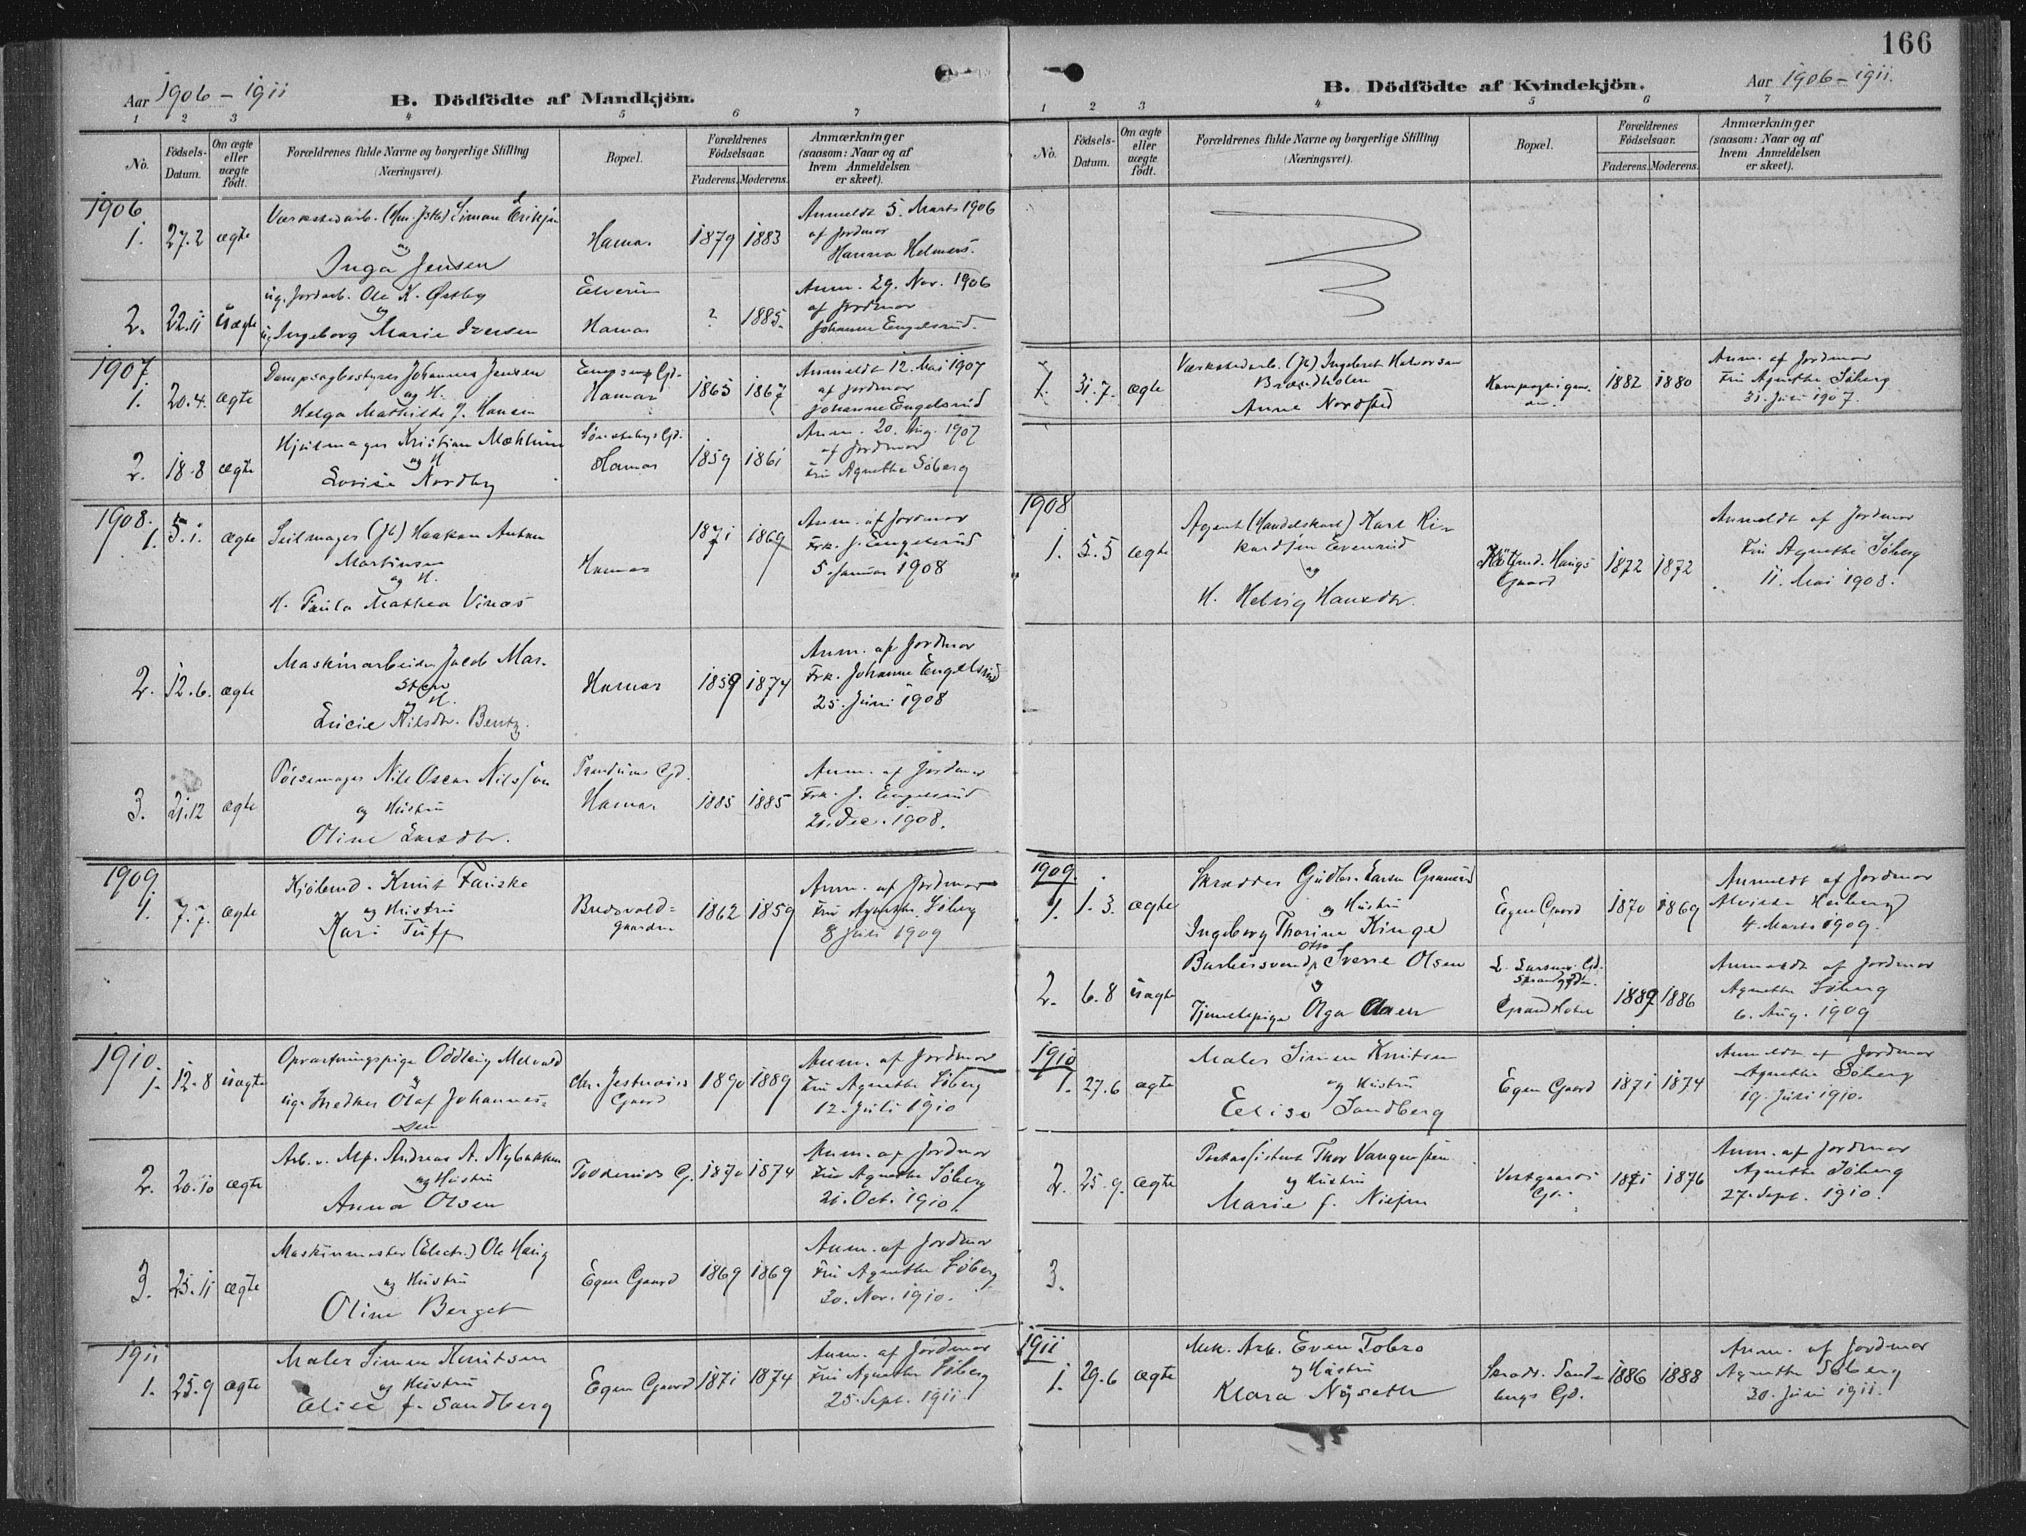 166
Aar 1906 – 1911
B. Dödfödte af Mandkjön.
1 2 3 4 5 6 7
No. Födsels-Datum. Om ægte eller uægte födt. Forældrenes fulde Navne og borgerlige Stilling (Næringsvei). Bopæl. Forældrenes Födselsaar. Faderens. Moderens. Anmærkninger (saasom: Naar og af hvem Anmeldelsen er skeet).
1906
1. 27.2 ægte
og
Inga Jensen
Hamar
1879 1883
Anmeldt 5. Marts 1906
af Jordmor
Hanna Helmers.
2. 22.11 uægte
ug. Jordarb. Ole K. Østby
og
ug. Ingeborg Marie Iversen
Elverum
Hamar
? 1885.
Anm. 29. Nov. 1906
af Jordmor
Johanne Engelsrud.
1907
1. 20.4. ægte
Dampsagbestyrer Johannes Jensen
og H.
Helga Mathilde J. Hansen
Hamar
1865 1867
Anmeldt 12. Mai 1907
af Jordmor
Johanne Engelsrud
2. 18.8 ægte
Hjulmager Kristian Mæhlum
og H
Lovise Nordby
Hamar
1859 1861
Anm. 20. Aug. 1907
af Jordmor
Fru Agnethe Söberg
1908.
1. 5.1. ægte
Seilmager (Jb) Haakon Anton
Martinsen
og H.
H. Paula Mathea
Hamar
1871 1869
Anm. af Jordmor
Frk. J. Engelsrud
5. Januar 1908
2. 12.6. ægte
Maskinarbeider Jacob Mar-
sten
og H.
Lucie Nilsdtr. Bentz.
Hamar
1859 1874
Anm. af Jordmor
Frk. Johanne Engelsrud
25. Juni 1908
3. 21.12 ægte
Pölsemager Nils Oscar Nilssen
og Hustru
Oline Larsdtr.
Hamar
1885 1885
Anm. af Jordmor
Frk. J. Engelsrud
21. Dec. 1908.
1909
1. 7.7. ægte
Kjöbmd. Knut Fauske
og Hustru
Kari Tuff
Bredsvold-
gaarden
1862 1859
Anm. af Jordmor
Fru Agnethe Söberg
8 Juli 1909
1910.
1. 12.8 uægte
Opvartningspige Oddlaug
og
Olaf Johannes-
sen
Chr.
Gaard
1890 1889
Anm. af Jordmor
Fru Agnethe Söberg
12. Juli 1910
2. 20.10 ægte
Arb. v. Mf. Andreas A. Nybakken
og Hustru
Anna Olsen
1870 1874
Anm. af Jordmor
Fru Agnethe Söberg
21. Oct. 1910.
3. 25.11 ægte
Maskinmester (Electr.) Ole Haug
og Hustru
Oline Berget
Egen Gaard
1869 1869
Anm. af Jordmor
Fru Agnethe Söberg
30. Nov. 1910.
1911
1. 25.9 ægte
Maler Simen Knutsen
og Hustru
Elise f. Sandberg
Egen Gaard
1871 1874
Anm. af Jordmor
Fru Agnethe Söberg
25. Sept. 1911
B. Dödfödte af Kvindekjön.
Aar 1906 – 1911.
1 2 3 4 5 6 7
No. Födsels-Datum. Om ægte eller uægte födt. Forældrenes fulde Navne og borgerlige Stilling (Næringsvei). Bopæl. Forældrenes Födselsaar. Faderens. Moderens. Anmærkninger (saasom: Naar og af hvem Anmeldelsen er skeet).
1. 31.7. ægte
Værkstedarb. (Jb) Ingebret Halvorsen
Anne Nordsted
1882 1880
Anm. af Jordmor
Fru Agnethe Söberg
31. Juli 1907.
1908
1. 5.5 ægte
Agent (Handelskart) Karl Ri-
kardsen Evensrud
og
H. Helvig Hansdtr.
Kjöbmd. Haugs
Gaard
1872 1872
Anmeldt af Jordmor
Fru Agnethe Söberg
11. Mai 1908.
1909.
1. 1.3. ægte
Skrædder Gudbr. Larsen
og Hustru
Ingeborg Thorine Kinge
Egen Gaard
1870 1869
Anmeldt af Jordmor
4. Marts 1909.
2. 6.8 uægte
Barbersvend Sverre Olsen
og
Tjenestepige Olga
L. Larsens Gd.
Grand Hotel
1889 1886
Anmeldt af Jordmor
Agnethe Söberg
6. Aug. 1909
1910
1. 27.6 ægte
Maler Simen Knutsen
og Hustru
Elise Sandberg
Egen Gaard
1871 1874
Anmeldt af Jordmor
Agnethe Söberg
19. Juli 1910.
2. 25.9. ægte
Postassistent Thor Vangensteen
og Hustru
Marie f. Nielsen
Vestgaards
Gd.
1871 1876
Anm. af Jordmor
Agnethe Söberg
27. Sept. 1910.
3.
1911
1. 29.6 ægte
Mek. Arb. Even Tobro
og Hustru
Klara Nöiseth
Skræd. Sand-
bergs Gd.
1886 1888
Anm. af Jordmor
Agnethe Söberg
30. Juni 1911.